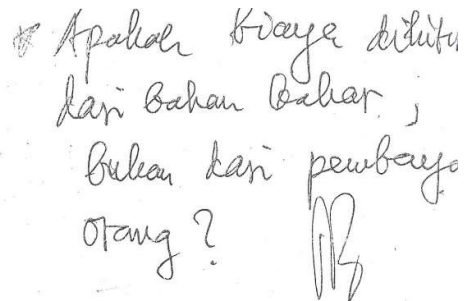 * Apakah biaya dihitu
dari bahan bakar ;
bukan dari pembaya
orang ?